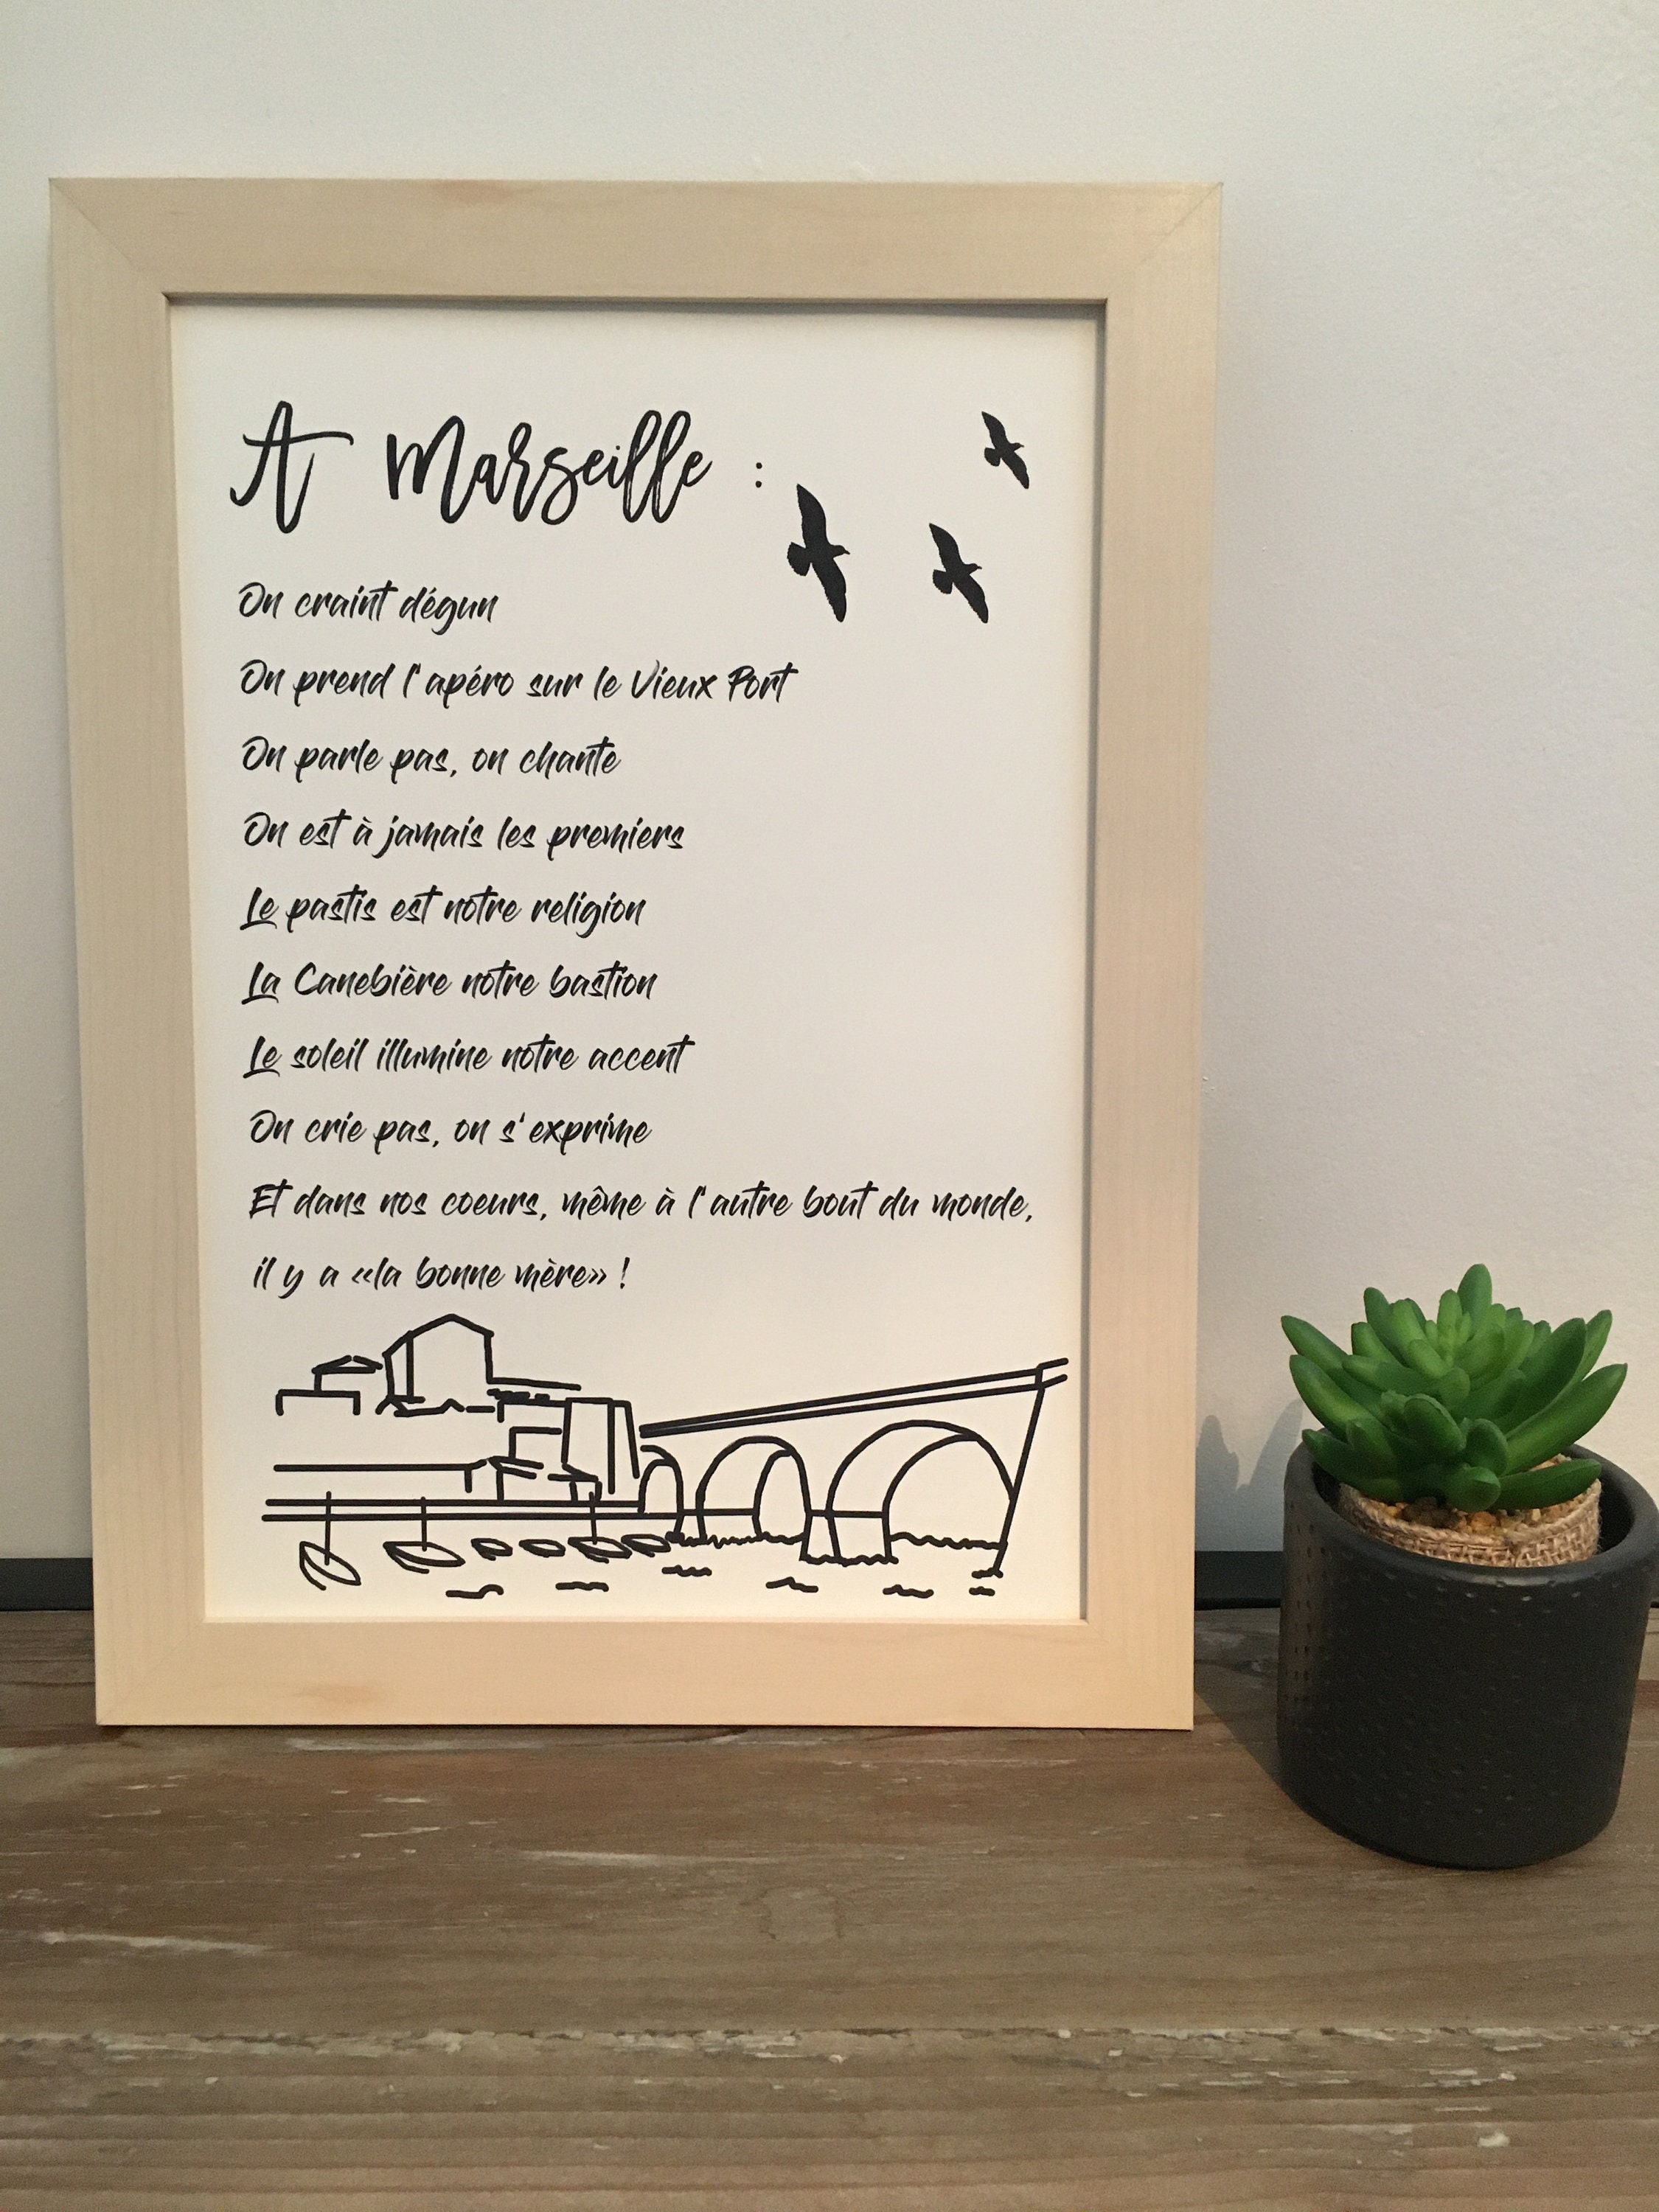 A Marseille :
On craint dégun
On prend l'apéro sur le Vieux Port
On parle pas, on chante
On est à jamais les premiers
Le pastis est notre religion
La Canebière notre bastion
Le soleil illumine notre accent
On crie pas, on s'exprime
Et dans nos coeurs, même à l'autre bout du monde,
il y a «la bonne mère» !